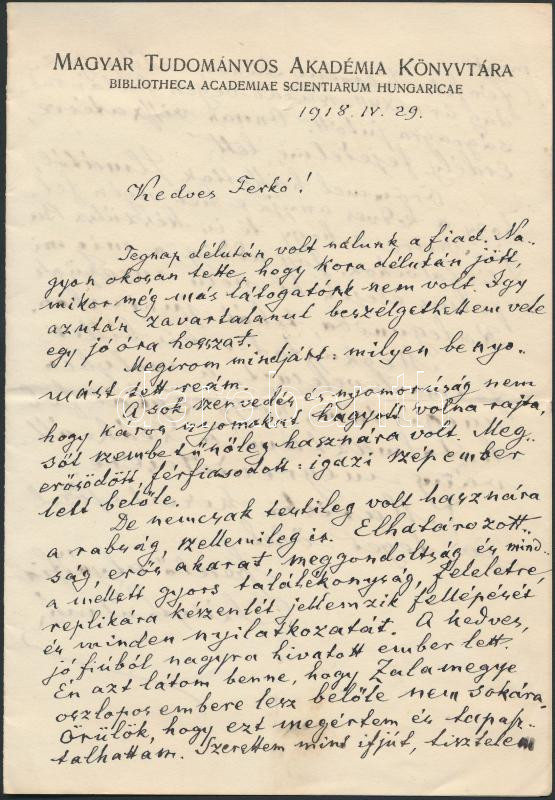 MAGYAR TUDOMÁNYOS AKADÉMIA KÖNYVTÁRA
BIBLIOTHECA ACADEMIAE SCIENTIARUM HUNGARICAE
1918. IV. 29.
Kedves Ferkó!
Tegnap délután volt nálunk a fiad. Na-
gyon okosan tette, hogy kora délután jött,
mikor még más látogatónk nem volt. Így
azután zavartalanul beszélgethettem vele
egy jó óra hosszat.
Megírom mindjárt: milyen benyo-
mást tett reám.
A sok szenvedés és nyomorúság nem
hogy káros nyomokat hagyott volna rajta,
sőt szembetünőleg hasznára volt. Meg-
erősödött, férfiasodott: igazi szép ember
lett belőle.
De nemcsak testileg volt hasznára
a rabság, szellemileg is. Elhatározott-
ság, erős akarat meggondoltság és mind-
a mellett gyors találékonyság, feleletre,
replikára készenlét jellemzik fellépését
és minden nyilatkozatát. A kedves,
jó fiúból nagyra hivatott ember lett.
Én azt látom benne, hogy Zalamegye
oszlopos embere lesz belőle nem sokára.
Örülök, hogy ezt megértem és tapasz-
talhattam. Szerettem mint ifjút, tisztelem